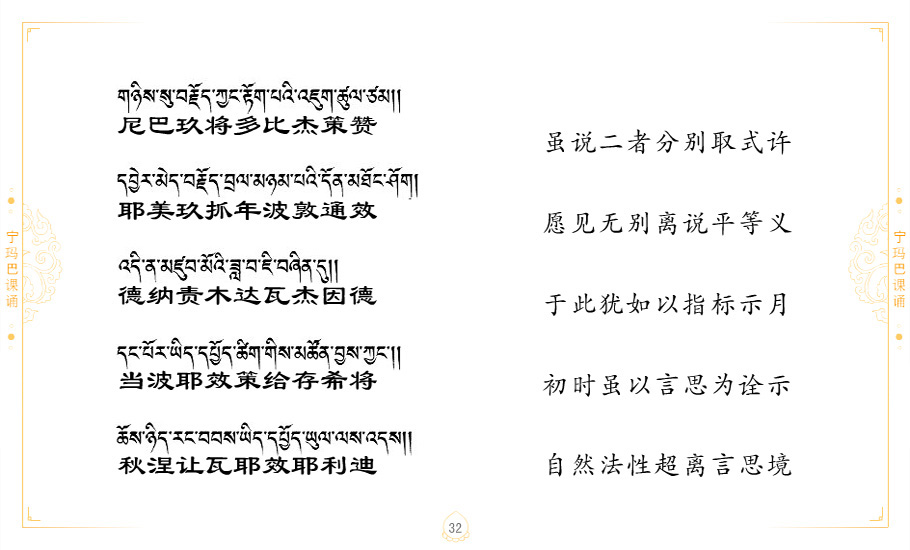 གཉིས་སུ་བརྗོད་ཀྱང་རྟོག་པའི་འཇུག་ཚུལ་ཙམ།།
尼巴玖将多比杰策赞
虽说二者分别取式许
དབྱེར་མེད་བརྗོད་བྲལ་མཉམ་པའི་དོན་མཐོང་ཤོག།
耶美玖抓年波敦通效
愿见无别离说平等义
འདི་ན་མཛུབ་མོའི་ཟླ་བ་ཇི་བཞིན་དུ།།
德纳责木达瓦杰因德
于此犹如以指标示月
དང་པོར་ཡིད་དཔྱོད་ཚིག་གིས་མཚོན་བྱས་ཀྱང་།།
当波耶效策给存希将
初时虽以言思为诠示
ཆོས་ཉིད་རང་བབས་ཡིད་དཔྱོད་ཡུལ་ལས་འདས།།
秋涅让瓦耶效耶利迪
自然法性超离言思境
宁玛巴课诵
宁玛巴课诵
32